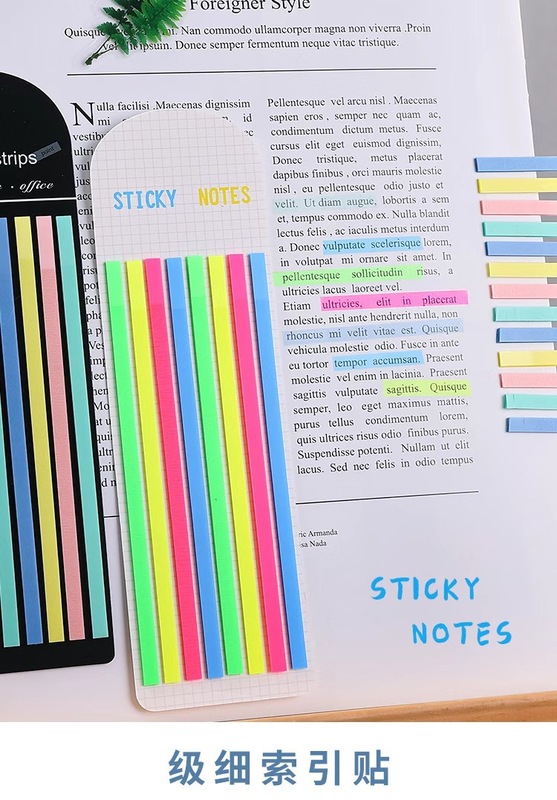 Foreigner Style
Quisque mi. Nan commodo ullamcorper magna non viverra .Proin
vel ipsum. Donec semper fermentum neque vitae tristique.
strips
point
office
STICKY NOTES
Nulla facilisi .Maecenas dignissim
mi id
Pellentesque vel arcu nisl . Maecenas
sapien eros , semper nec quam ac,
condimentum dictum metus. Fusce
cursus erat euismod dignissim,
Donec tristique, metus placerat
dapibus finibus , orci mauris molestie
nisl , eu pellentesque odio justo et
velit. Ut diam augue, lobortis a sem
et, tempus commodo ex. Nulla blandit
lectus felis , ac iaculis metus interdum
a. Donec vulputate scelerisque lorem,
in volutpat mi ornare sit amet. In
pellentesque sollicitudin risus, a
ultricies lacus laoreet vel.
Etiam ultricies, elit in placerat
molestie, nisl ante hendrerit nulla, non
rhoncus mi velit vitae est. Quisque
vehicula molestie odio. Fusce in ante
eu tortor tempor accumsan. Praesent
molestie vel enim in lacinia. Praesent
sagittis vulputate sagittis. Quisque
semper, leo eget maximus mattis,
purus tellus condimentum lorem,
quis ultrices risus odio finibus purus.
Suspendisse potenti. Nullam ut elit
lacus. Sed nec felis in odio tempus
ric Armanda
sa Nada
STICKY
NOTES
级细索引贴